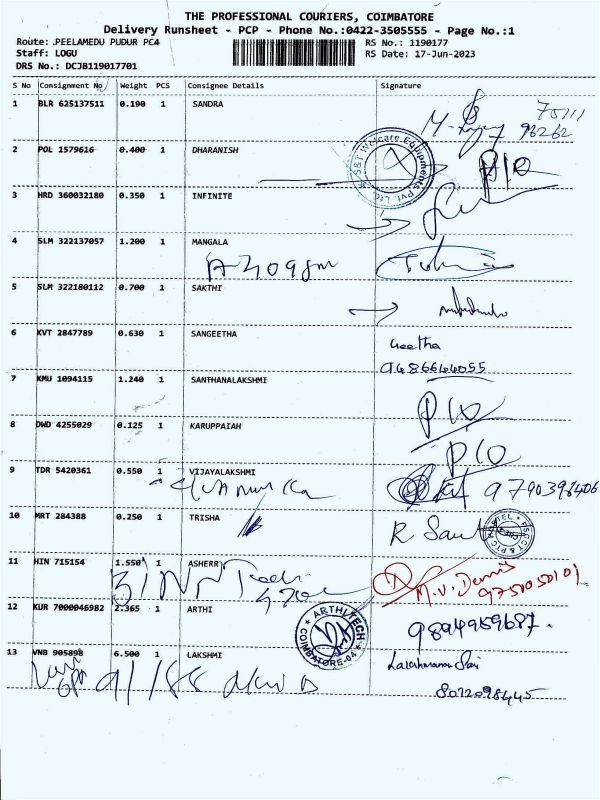 THE PROFESSIONAL COURIERS, COIMBATORE
Delivery Runsheet - PCP - Phone No.:0422-3505555 - Page No.:1
Route: PEELAMEDU PUDUR PC4 RS No.: 1190177
Staff: LOGU RS Date: 17-Jun-2023
DRS No.: DCJB119017701
S No Consignment No Weight PCS Consignee Details Signature
1 BLR 625137511 0.190 1 SANDRA
2 POL 1579616 0.400 1 DHARANISH
S&T Welcare Equipments Pvt. Ltd.
3 HRD 360032180 0.350 1 INFINITE
4 SLM 322137057 1.200 1 MANGALA
5 SLM 322180112 0.700 1 SAKTHI
6 KVT 2847789 0.630 1 SANGEETHA
Geetha
9486644055
7 KMU 1094115 1.240 1 SANTHANALAKSHMI
P10
8 DWD 4255029 0.125 1 KARUPPAIAH
P10
9 TDR 5420361 0.550 1 VIJAYALAKSHMI
9790398406
10 MRT 284388 0.250 1 TRISHA
11 HIN 715154 1.550 1 ASHERR
M.V. Dennis
9751050101
12 KUR 7000046982 2.365 1 ARTHI
ARTHI TECH
COIMBATORE-04
9894959687.
13 VNB 905898 6.500 1 LAKSHMI
8072098445